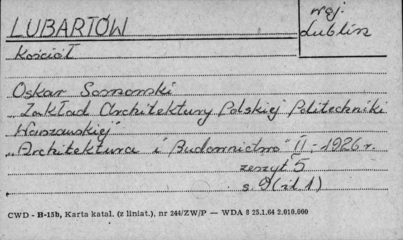 LUBARTÓW
woj.
Lublin
Kościół
Oskar Sosnowski
"Zakład Architektury Polskiej Politechniki
Warszawskiej"
"Architektura i Budownictwo" II-1926 r.
zeszyt 5
s. 9 (il. 1)
CWD - B-15b, Karta katal. (z liniat.), nr 244/ZW/P — WDA 8 25.1.64 2.010.000